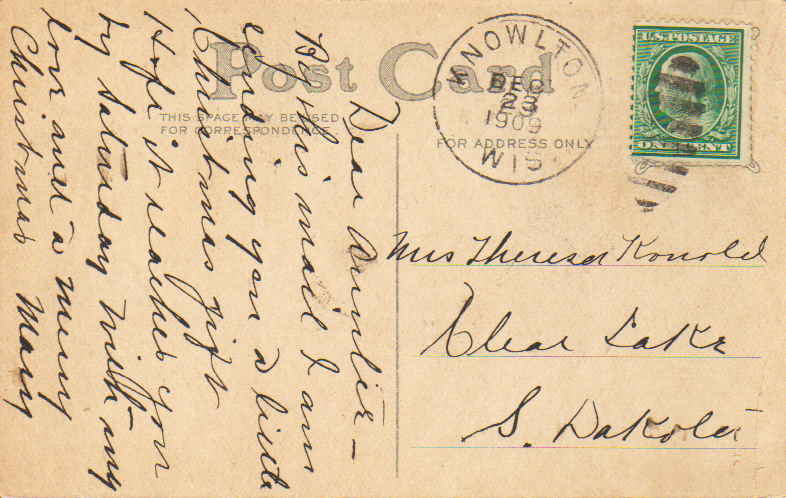 Post Card
THIS SPACE MAY BE USED
FOR CORRESPONDENCE.
FOR ADDRESS ONLY
KNOWLTON
DEC
23
1909
WIS.
U.S. POSTAGE
ONE CENT
Mrs Theresa Konold
Clear Lake
S. Dakota
Dear
By this mail I am
sending you a little
Christmas gift
Hope it reaches you
by Saturday With my
love and a merry
Christmas Mary